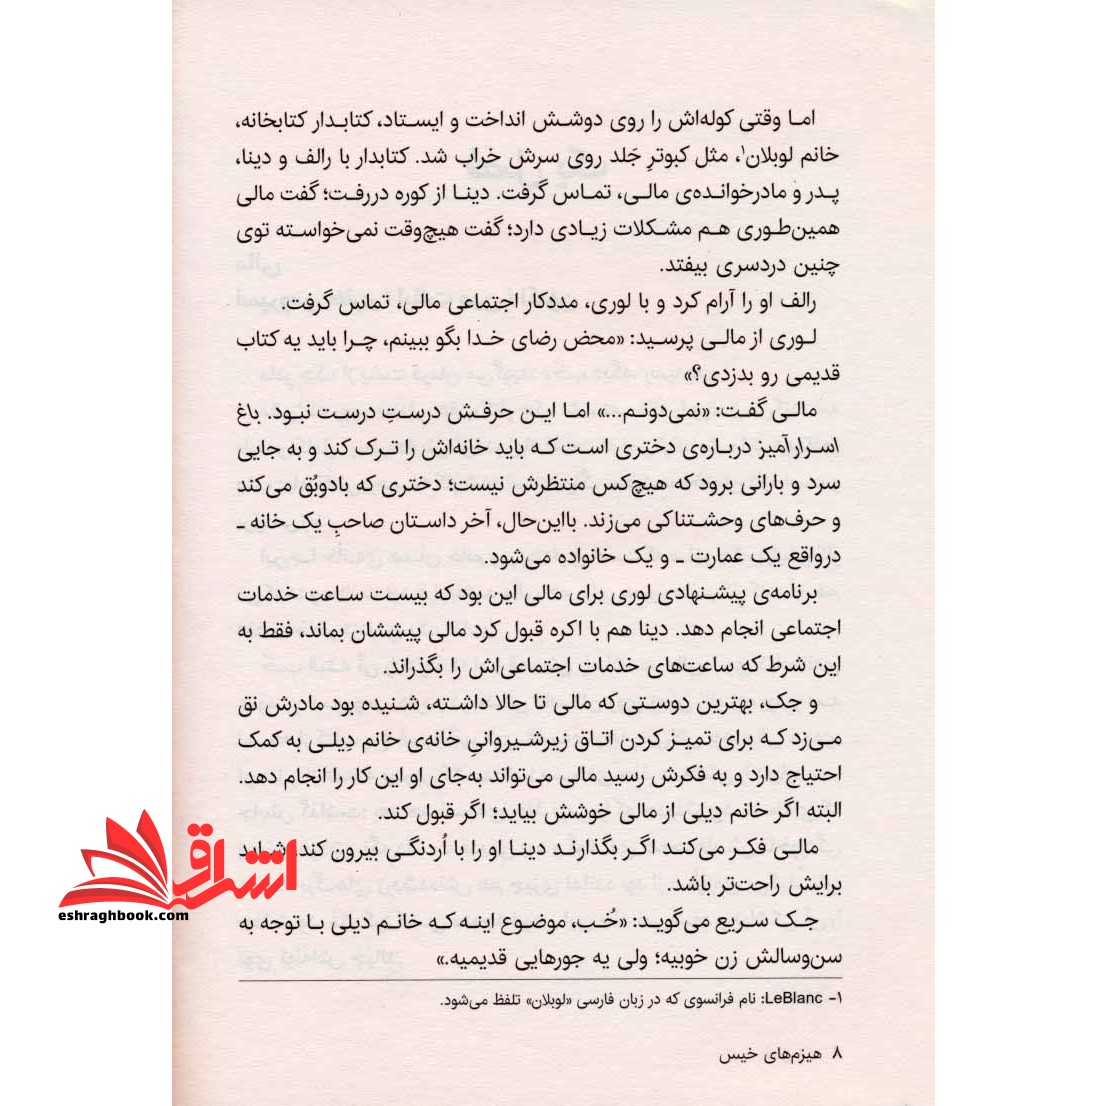 اما وقتی کوله‌اش را روی دوشش انداخت و ایستاد، کتابدار کتابخانه،
خانم لوبلان۱، مثل کبوترِ جَلد روی سرش خراب شد. کتابدار با رالف و دینا،
پدر و مادرخوانده‌ی مالی، تماس گرفت. دینا از کوره دررفت؛ گفت مالی
همین‌طوری هم مشکلات زیادی دارد؛ گفت هیچ‌وقت نمی‌خواسته توی
چنین دردسری بیفتد.
رالف او را آرام کرد و با لوری، مددکار اجتماعی مالی، تماس گرفت.
لوری از مالی پرسید: «محض رضای خدا بگو ببینم، چرا باید یه کتاب
قدیمی رو بدزدی؟»
مالی گفت: «نمی‌دونم...» اما این حرفش درستِ درست نبود. باغ
اسرارآمیز درباره‌ی دختری است که باید خانه‌اش را ترک کند و به جایی
سرد و بارانی برود که هیچ‌کس منتظرش نیست؛ دختری که بادوبُق می‌کند
و حرف‌های وحشتناکی می‌زند. بااین‌حال، آخر داستان صاحبِ یک خانه ـ
درواقع یک عمارت ـ و یک خانواده می‌شود.
برنامه‌ی پیشنهادی لوری برای مالی این بود که بیست ساعت خدمات
اجتماعی انجام دهد. دینا هم با اکره قبول کرد مالی پیششان بماند، فقط به
این شرط که ساعت‌های خدمات اجتماعی‌اش را بگذراند.
و جک، بهترین دوستی که مالی تا حالا داشته، شنیده بود مادرش نق
می‌زد که برای تمیز کردن اتاق زیرشیروانیِ خانه‌ی خانم دِیلی به کمک
احتیاج دارد و به فکرش رسید مالی می‌تواند به‌جای او این کار را انجام دهد.
البته اگر خانم دیلی از مالی خوشش بیاید؛ اگر قبول کند.
مالی فکر می‌کند اگر بگذارند دینا او را با اُردنگی بیرون کند، شاید
برایش راحت‌تر باشد.
جک سریع می‌گوید: «خُب، موضوع اینه که خانم دیلی با توجه به
سن‌وسالش زن خوبیه؛ ولی یه جورهایی قدیمیه.»
۱- LeBlanc: نام فرانسوی که در زبان فارسی «لوبلان» تلفظ می‌شود.
۸ هیزم‌های خیس
اشراق
eshraghbook.com